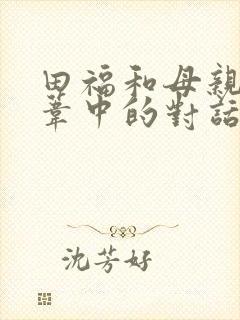 田福和母親
葦中的對話
沈芳好